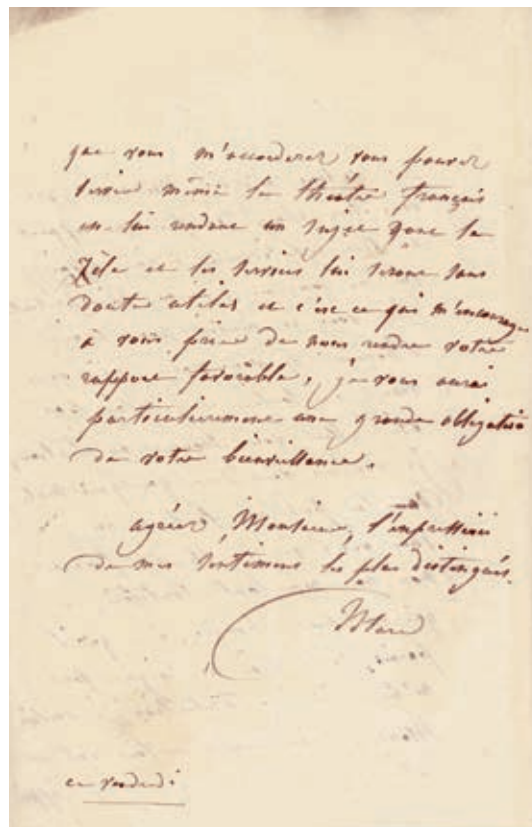 que vous m'accorderez vous pouvez
servir même le théâtre français
en lui rendant un sujet dont le
zèle et les services lui seront sans
doute utiles et c'est ce qui m'encourage
a vous prier de nous rendre votre
rapport favorable, je vous aurai
particulièrement une grande obligation
de votre bienveillance.
agréez, Monsieur, l'expression
de mes sentimens les plus distingués.
Mars
ce vendredi